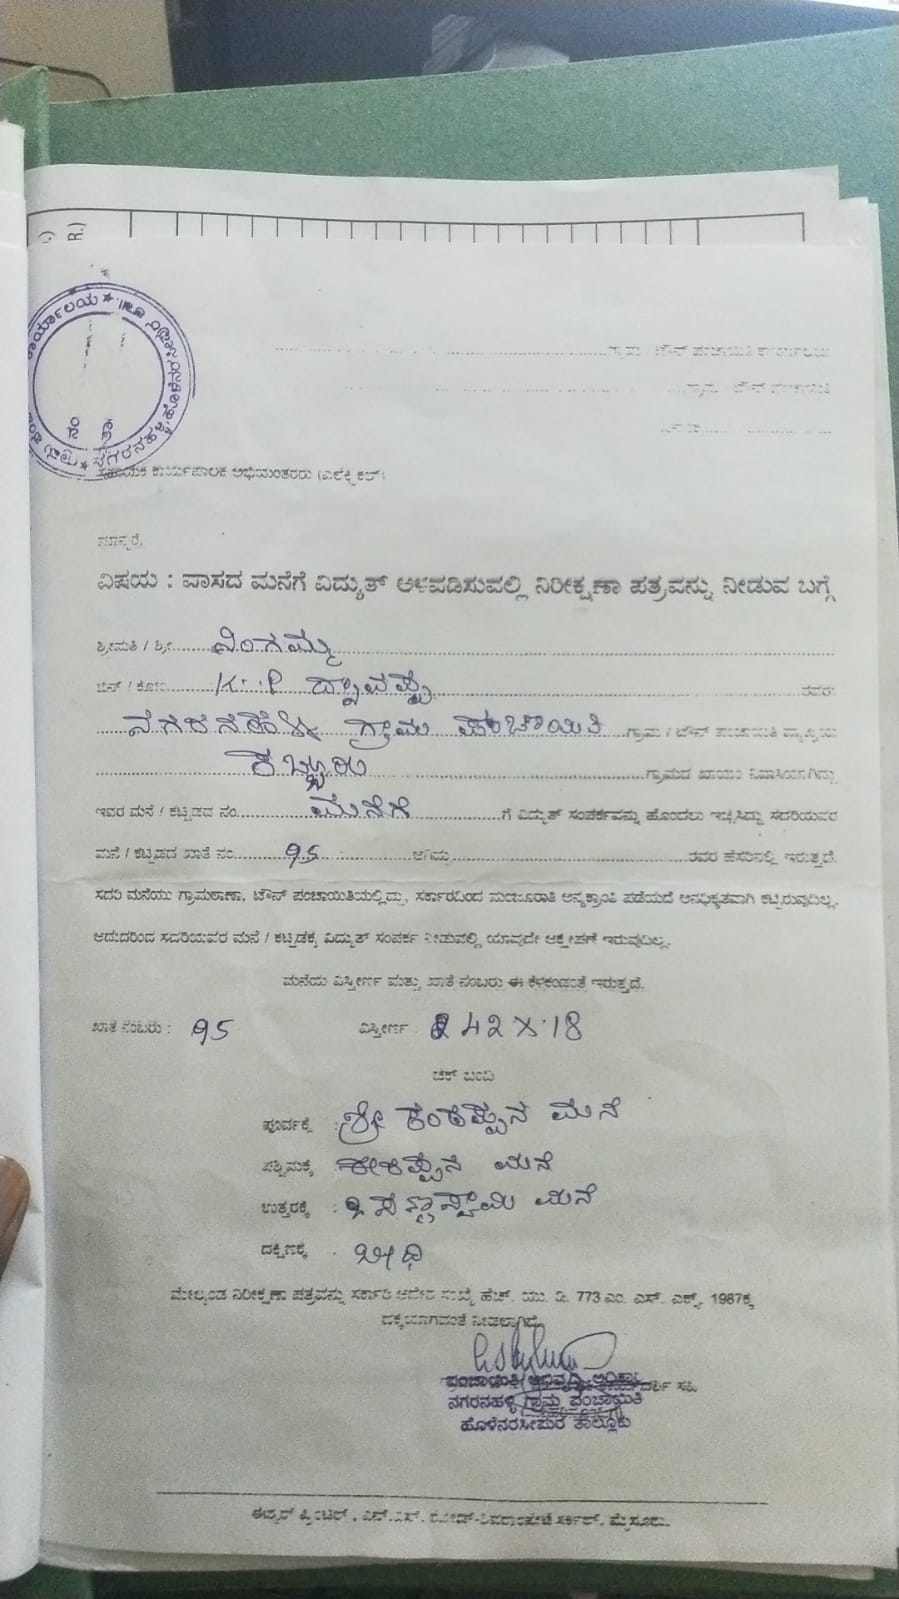 ಕಾರ್ಯಾಲಯ * ನಗರನಹಳ್ಳಿ * ಗ್ರಾಮ
ಗ್ರಾಮ / ಟೌನ್ ಪಂಚಾಯಿತಿ ಕಾರ್ಯಾಲಯ
ಗ್ರಾಮ / ಟೌನ್ ಪಂಚಾಯಿತಿ
ಸಹಾಯಕ ಕಾರ್ಯಪಾಲಕ ಅಭಿಯಂತರರು (ಎಲೆಕ್ಟ್ರಿಕಲ್)
ಮಾನ್ಯರೆ,
ವಿಷಯ : ವಾಸದ ಮನೆಗೆ ವಿದ್ಯುತ್ ಅಳವಡಿಸುವಲ್ಲಿ ನಿರೀಕ್ಷಣಾ ಪತ್ರವನ್ನು ನೀಡುವ ಬಗ್ಗೆ
ಶ್ರೀಮತಿ / ಶ್ರೀ ನಿಂಗಮ್ಮ
ಬಿನ್ / ಕೋಂ K.P ರವರು
ನಗರನಹಳ್ಳಿ ಗ್ರಾಮ ಪಂಚಾಯಿತಿ ಗ್ರಾಮ / ಟೌನ್ ಪಂಚಾಯಿತಿ ವ್ಯಾಪ್ತಿಯ
ಕಬ್ಬೂರು ಗ್ರಾಮದ ಖಾಯಂ ನಿವಾಸಿಯಾಗಿದ್ದು
ಇವರ ಮನೆ / ಕಟ್ಟಡದ ನಂ. ಮನೆಗೆ ಗೆ ವಿದ್ಯುತ್ ಸಂಪರ್ಕವನ್ನು ಹೊಂದಲು ಇಚ್ಛಿಸಿದ್ದು ಸದರಿಯವರ
ಮನೆ / ಕಟ್ಟಡದ ಖಾತೆ ನಂ. 95 ಆಗಿದ್ದು ರವರ ಹೆಸರಿನಲ್ಲಿ ಇರುತ್ತದೆ.
ಸದರಿ ಮನೆಯು ಗ್ರಾಮಠಾಣಾ, ಟೌನ್ ಪಂಚಾಯಿತಿಯಲ್ಲಿದ್ದು, ಸರ್ಕಾರದಿಂದ ಮಂಜೂರಾತಿ ಅನ್ಯಕ್ರಾಂತಿ ಪಡೆಯದೆ ಅನಧಿಕೃತವಾಗಿ ಕಟ್ಟಿರುವುದಿಲ್ಲ.
ಆದುದರಿಂದ ಸದರಿಯವರ ಮನೆ / ಕಟ್ಟಡಕ್ಕೆ ವಿದ್ಯುತ್ ಸಂಪರ್ಕ ನೀಡುವಲ್ಲಿ ಯಾವುದೇ ಆಕ್ಷೇಪಣೆ ಇರುವುದಿಲ್ಲ.
ಮನೆಯ ವಿಸ್ತೀರ್ಣ ಮತ್ತು ಖಾತೆ ನಂಬರು ಈ ಕೆಳಕಂಡಂತೆ ಇರುತ್ತದೆ.
ಖಾತೆ ನಂಬರು : 95 ವಿಸ್ತೀರ್ಣ : 42 X 18
ಚೆಕ್ ಬಂದಿ
ಪೂರ್ವಕ್ಕೆ : ಶ್ರೀ ಮನೆ
ಪಶ್ಚಿಮಕ್ಕೆ ಮನೆ
ಉತ್ತರಕ್ಕೆ : ಮನೆ
ದಕ್ಷಿಣಕ್ಕೆ : ಬೀಧಿ
ಮೇಲ್ಕಂಡ ನಿರೀಕ್ಷಣಾ ಪತ್ರವನ್ನು ಸರ್ಕಾರಿ ಆದೇಶ ಸಂಖ್ಯೆ ಹೆಚ್. ಯು. ಡಿ. 773 ಎಂ. ಎಸ್. ಎಕ್ಸ್. 1987ಕ್ಕೆ
ಬದ್ಧವಾಗುವಂತೆ ನೀಡಲಾಗಿದೆ.
ಪಂಚಾಯಿತಿ ಅಭಿವೃದ್ಧಿ ಅಧಿಕಾರಿ
ನಗರನಹಳ್ಳಿ ಗ್ರಾಮ ಪಂಚಾಯಿತಿ
ಹೊಳೆನರಸೀಪುರ ತಾಲ್ಲೂಕು
ಈಶ್ವರ್ ಪ್ರಿಂಟರ್ಸ್, ಎನ್.ಎಸ್. ರೋಡ್-ಶಿವರಾಂಪೇಟೆ ಸರ್ಕಲ್, ಮೈಸೂರು.